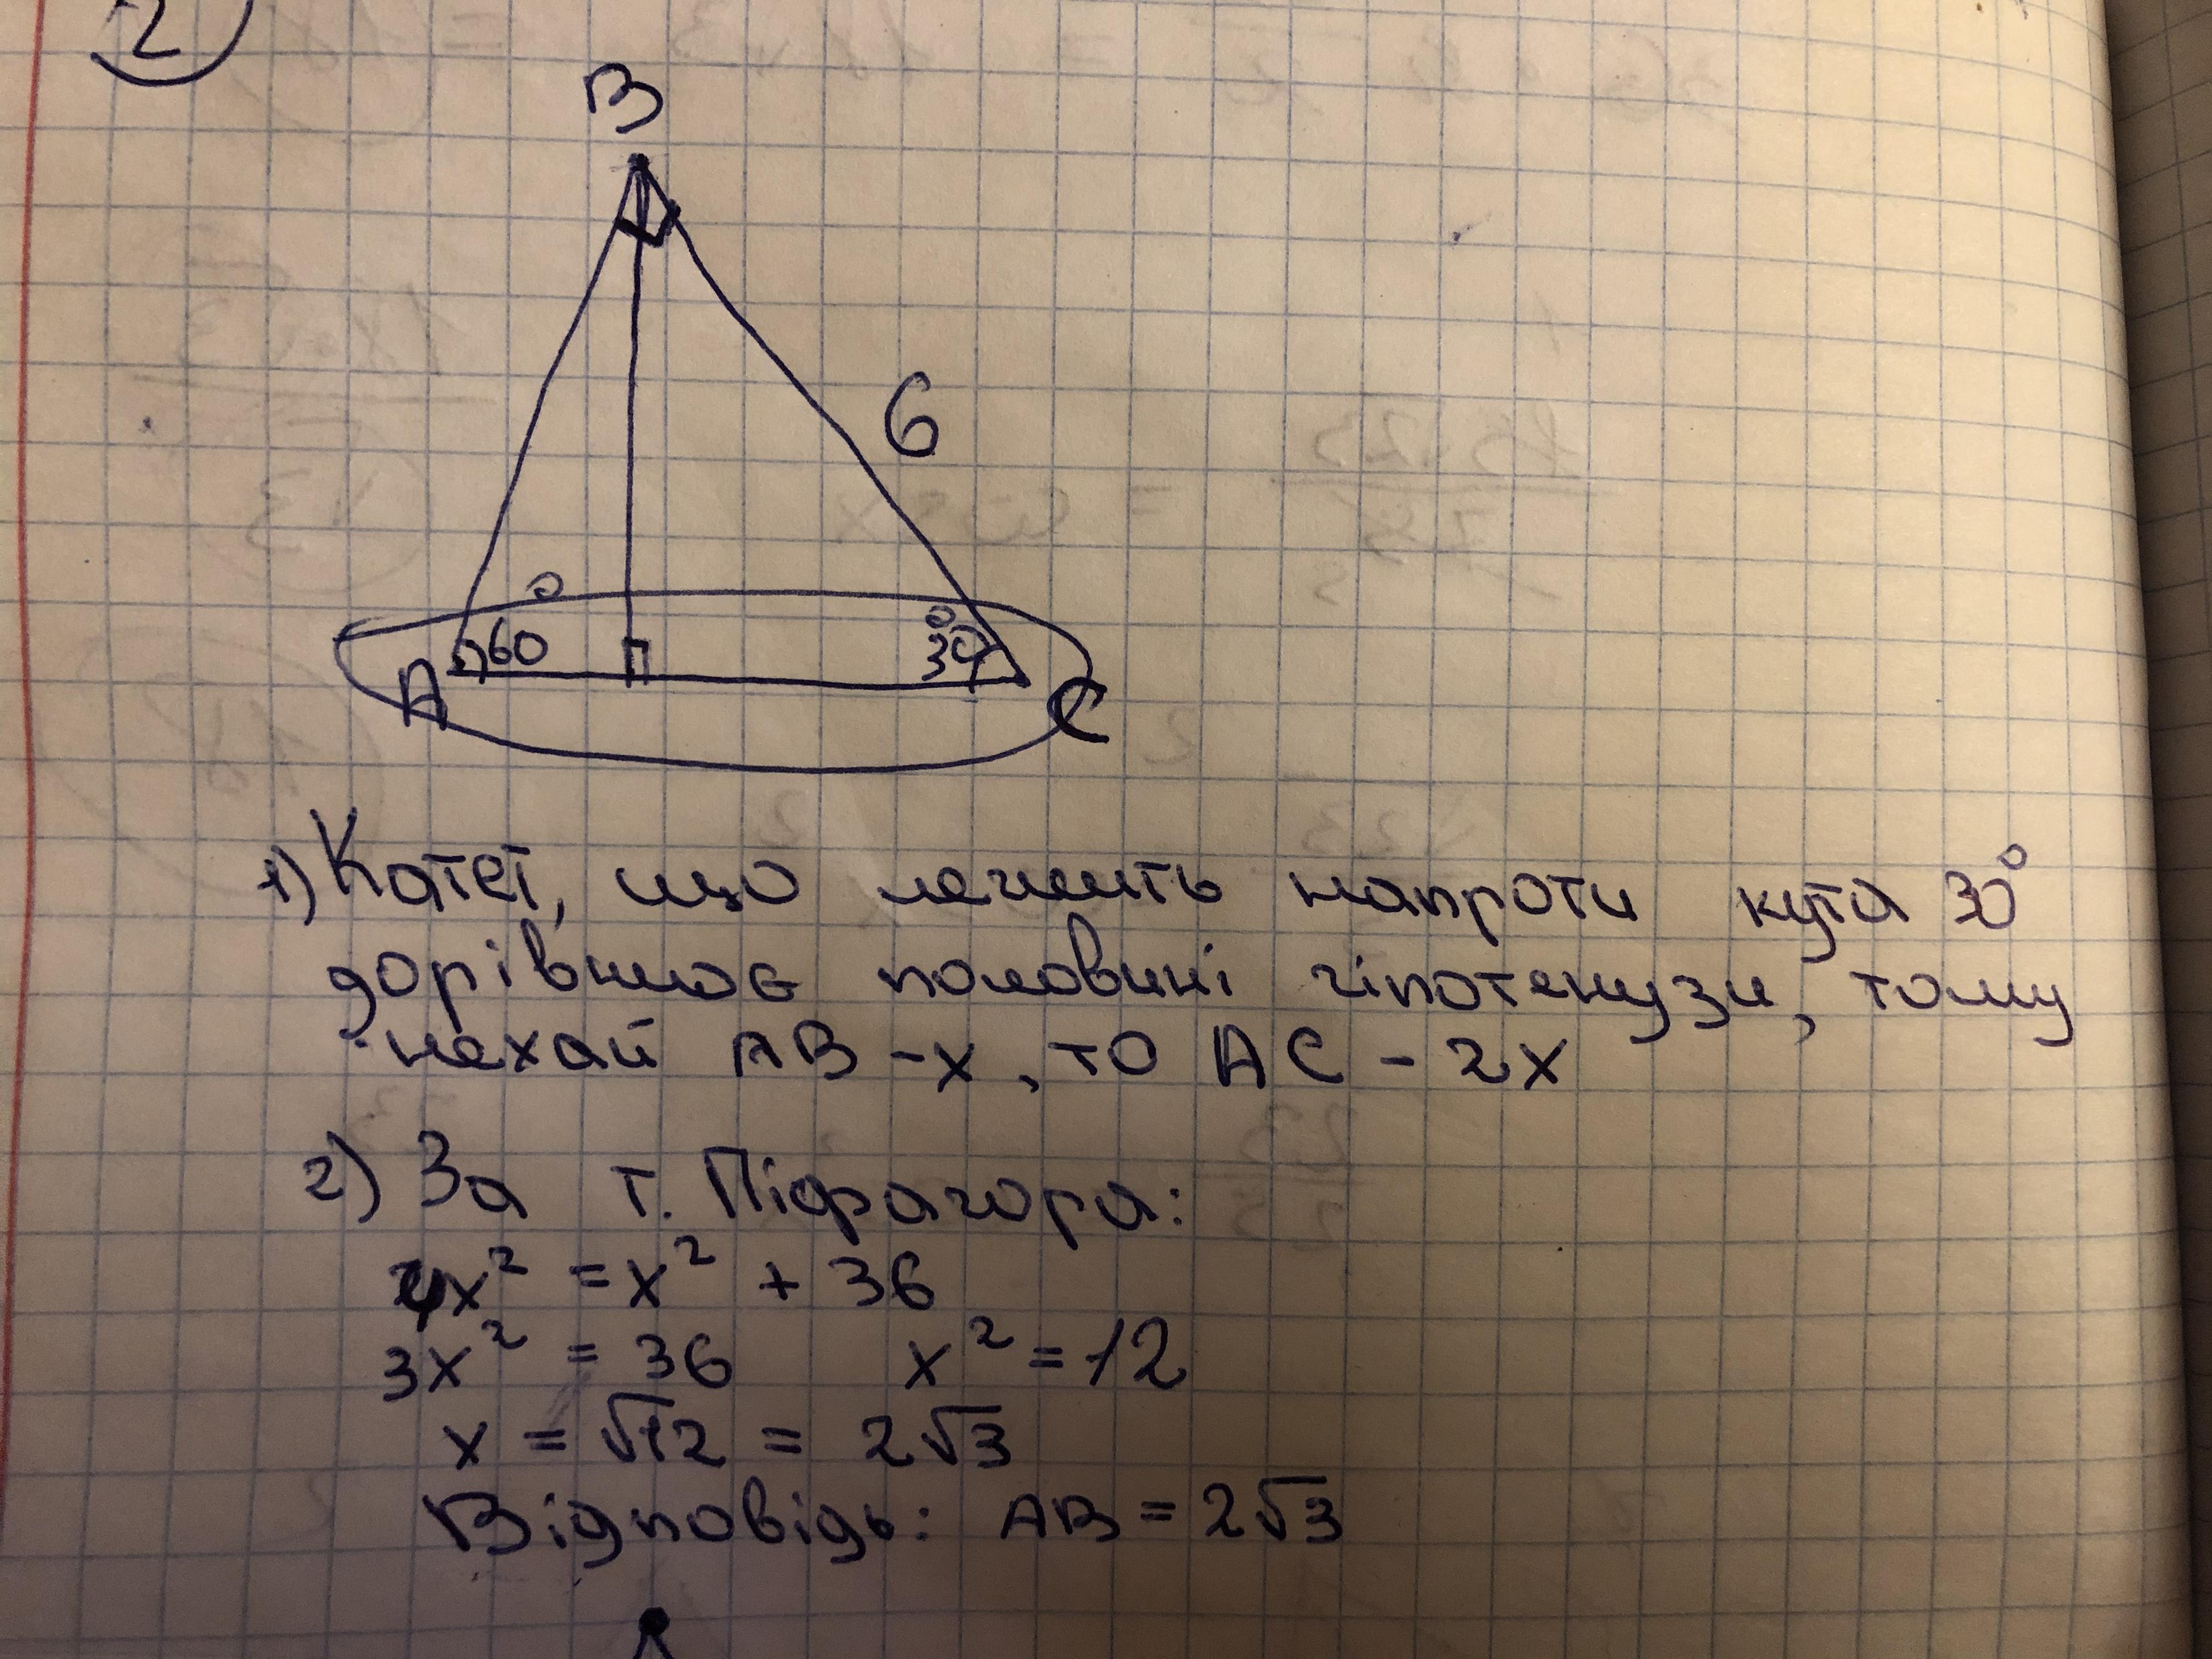 2
B
6
60°
30°
A
C
1) Катет, що лежить напроти кута 30°
дорівнює половині гіпотенузи, тому
нехай AB - x, то AC - 2x
2) За т. Піфагора:
4x² = x² + 36
3x² = 36 x² = 12
x = √12 = 2√3
Відповідь: AB = 2√3